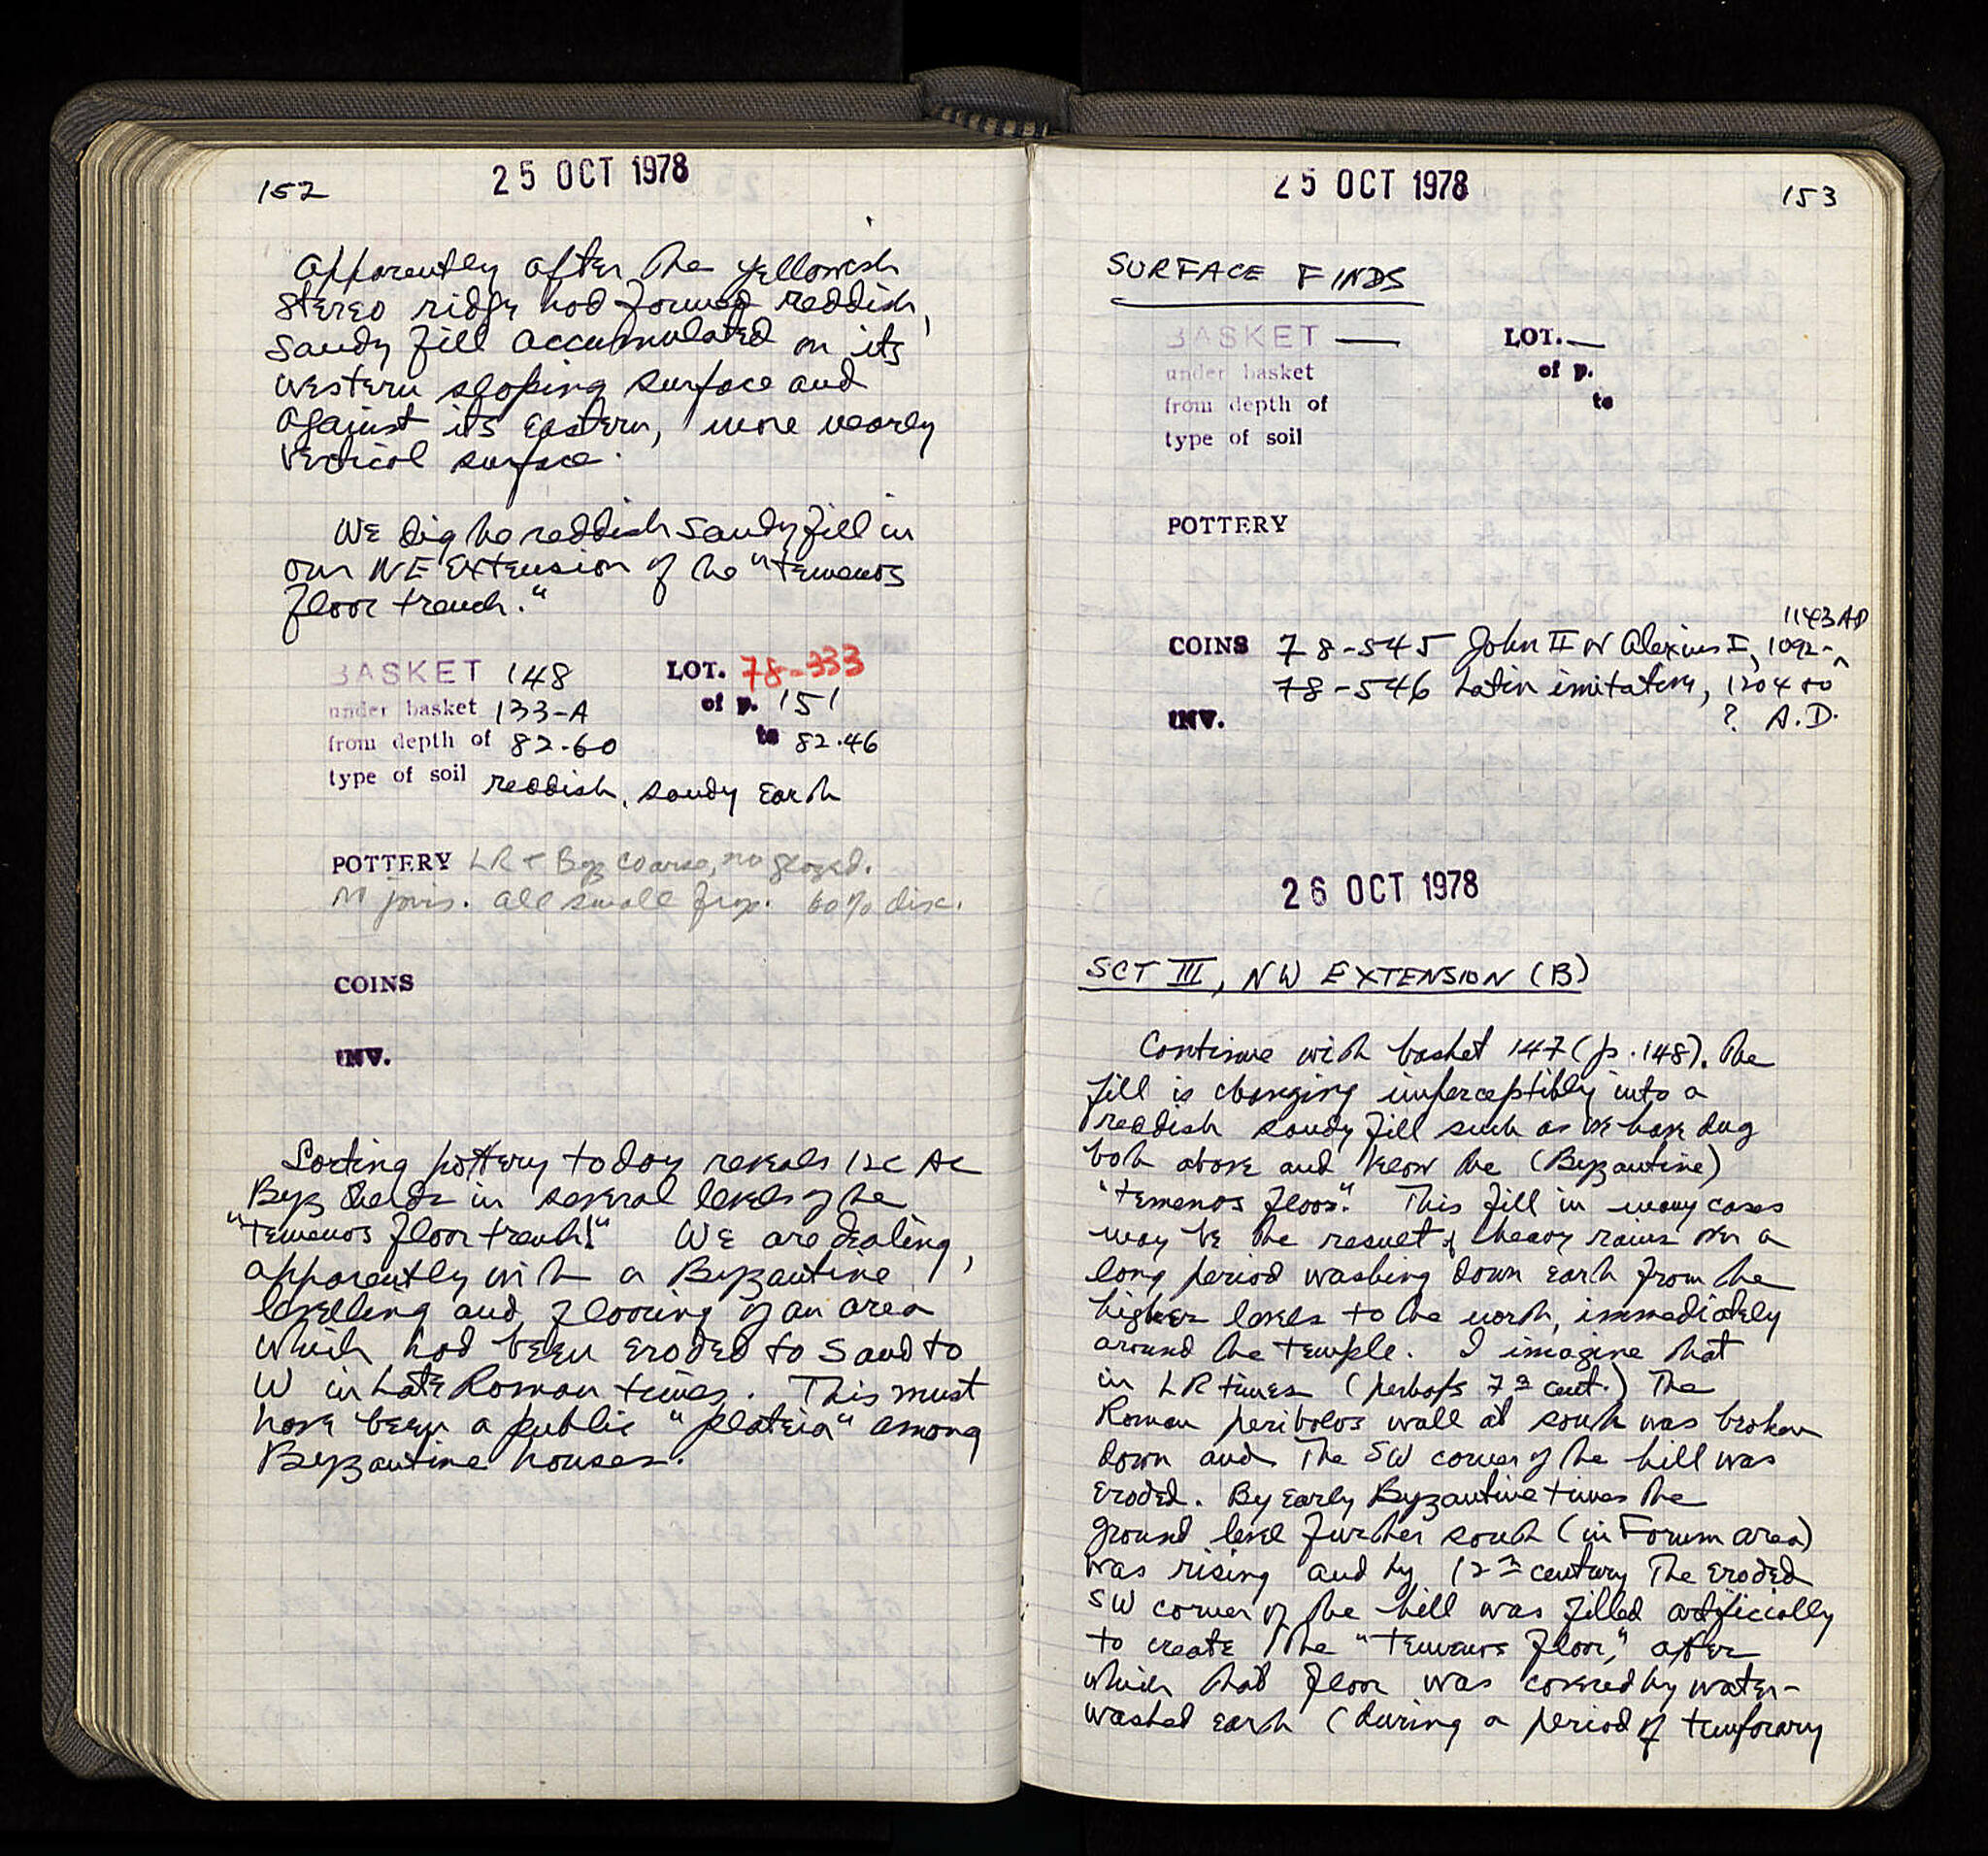 152
25 OCT 1978
Apparently after the yellowish
stereo ridge had formed reddish,
sandy fill accumulated on its
western sloping surface and
against its eastern, more nearly
vertical surface.
We dig the reddish sandy fill in
our NE Extension of the "temenos
floor trench."
BASKET 148 LOT. 78-333
under basket 133-A of p. 151
from depth of 82.60 to 82.46
type of soil reddish, sandy earth
POTTERY LR + Byz coarse, no glazed.
joins. All small frag. 60% disc.
COINS
INV.
Sorting pottery today reveals 12c AC
Byz sherds in several levels of the
"temenos floor trench!" We are dealing,
apparently with a Byzantine
levelling and flooring of an area
which had been eroded to S and to
W in Late Roman times. This must
have been a public "plateia" among
Byzantine houses.
25 OCT 1978
153
SURFACE FINDS
BASKET — LOT. —
under basket of p.
from depth of to
type of soil
POTTERY
1143 AD
COINS 78-545 John II or Alexius I, 1092-^
78-546 Latin imitative, 1204 to
INV. ? A.D.
26 OCT 1978
SCT III, NW EXTENSION (B)
Continue with basket 147 (p. 148). The
fill is changing imperceptibly into a
reddish sandy fill such as we have dug
both above and below the (Byzantine)
"temenos floor." This fill in many cases
may be the result of heavy rains over a
long period washing down earth from the
higher levels to the north, immediately
around the temple. I imagine that
in LR times (perhaps 7th cent.) the
Roman peribolos wall at south was broken
down and the SW corner of the hill was
eroded. By early Byzantine times the
ground level further south (in Forum area)
was rising and by 12th century the eroded
SW corner of the hill was filled artificially
to create the "temenos floor," after
which that floor was covered by water-
washed earth (during a period of temporary